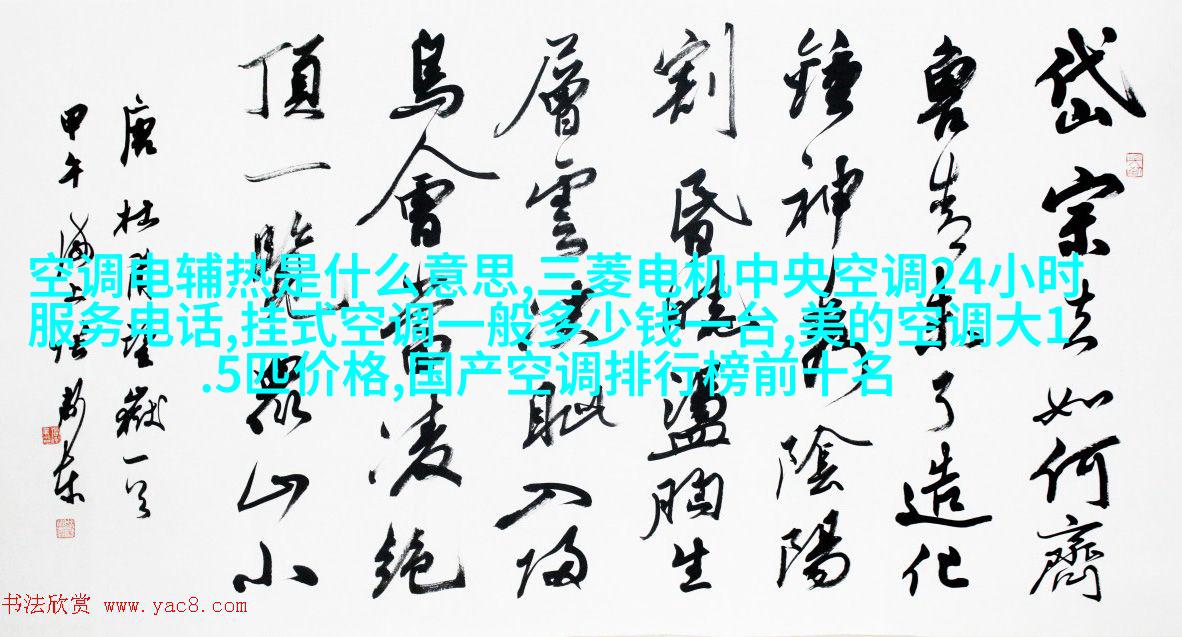 岱宗夫如何齊
魯青未了造化
鍾神秀陰陽
割昏曉盪胸生
層雲決眦入歸
鳥會當凌絕
頂一覽眾山小
唐杜甫望嶽一首
甲午海上
空调电辅热是什么意思,三菱电机中央空调24小时
服务电话,挂式空调一般多少钱一台,美的空调大1
.5匹价格,国产空调排行榜前十名
书法欣赏 www.yac8.com